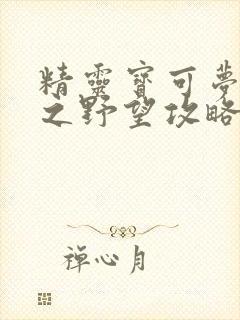 精靈寶可夢
之野望攻略
禪心月